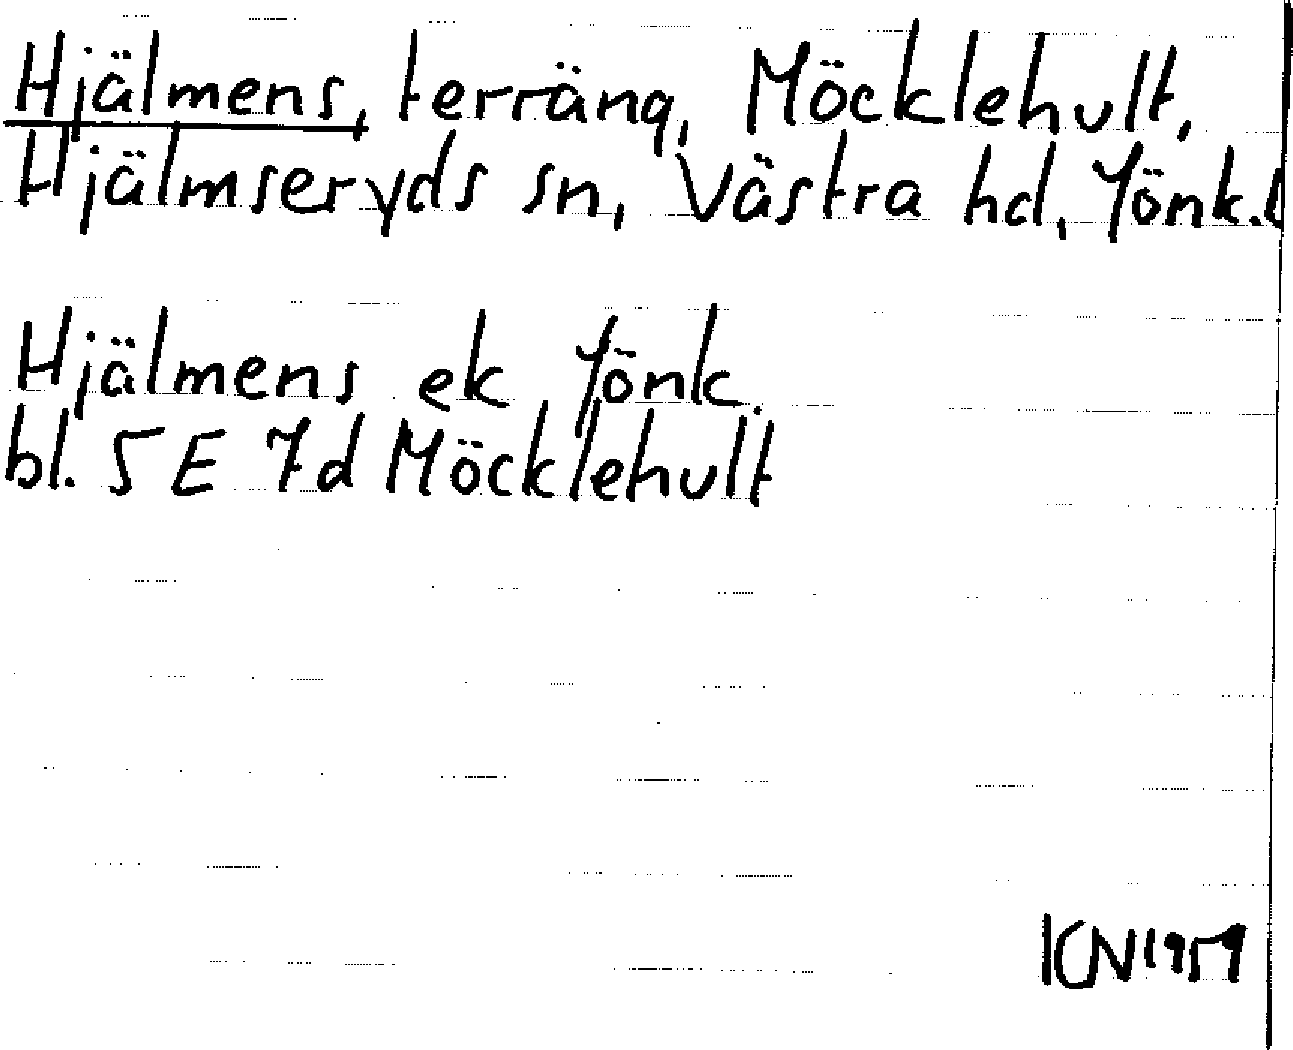 Hjälmens, terräng, Möcklehult,
Hjälmseryds sn, Västra hd, Jönk.l
Hjälmens ek Jönk.
bl. 5 E 7d Möcklehult
KN 1959